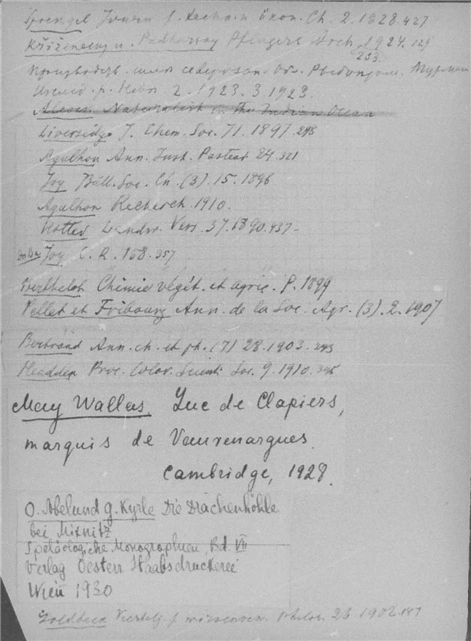 Sprengel Journ f. techn. u. ökon. Ch. 2. 1828. 427
Kříženecký u. Podhorský Pflügers Arch. 1924. 129
253.
2. 1923. 3 1923
Alcock Naturalist in the Indian Ocean
Liversidge J. Chem. Soc. 71. 1897. 298
Agulhon Ann. Inst. Pasteur 24. 321
Jay Bull. Soc. Ch. (3). 15. 1896
Agulhon Recherch. 1910.
Hotter Landw. Vers. 37. 1890. 437.
Jay C. R. 158. 357
Berthelot Chimie végét. et agric. P. 1899
Pellet et Fribourg Ann. de la Soc. Agr. (3). 2. 1907
Bertrand Ann. ch. et ph. (7) 28. 1903. 245
Headden Proc. Color. Scient. Soc. 9. 1910. 345
May Wallas, Luc de Clapiers,
marquis de Vauvenargues.
Cambridge, 1928.
O. Abel und G. Kyrle Die Drachenhöhle
bei Mixnitz
Speläologische Monographien, Bd. VII
Verlag Oesterr Staatsdruckerei
Wien 1930
Goldbeck Viertelj. f. wissensch. Philos. 26. 1902.